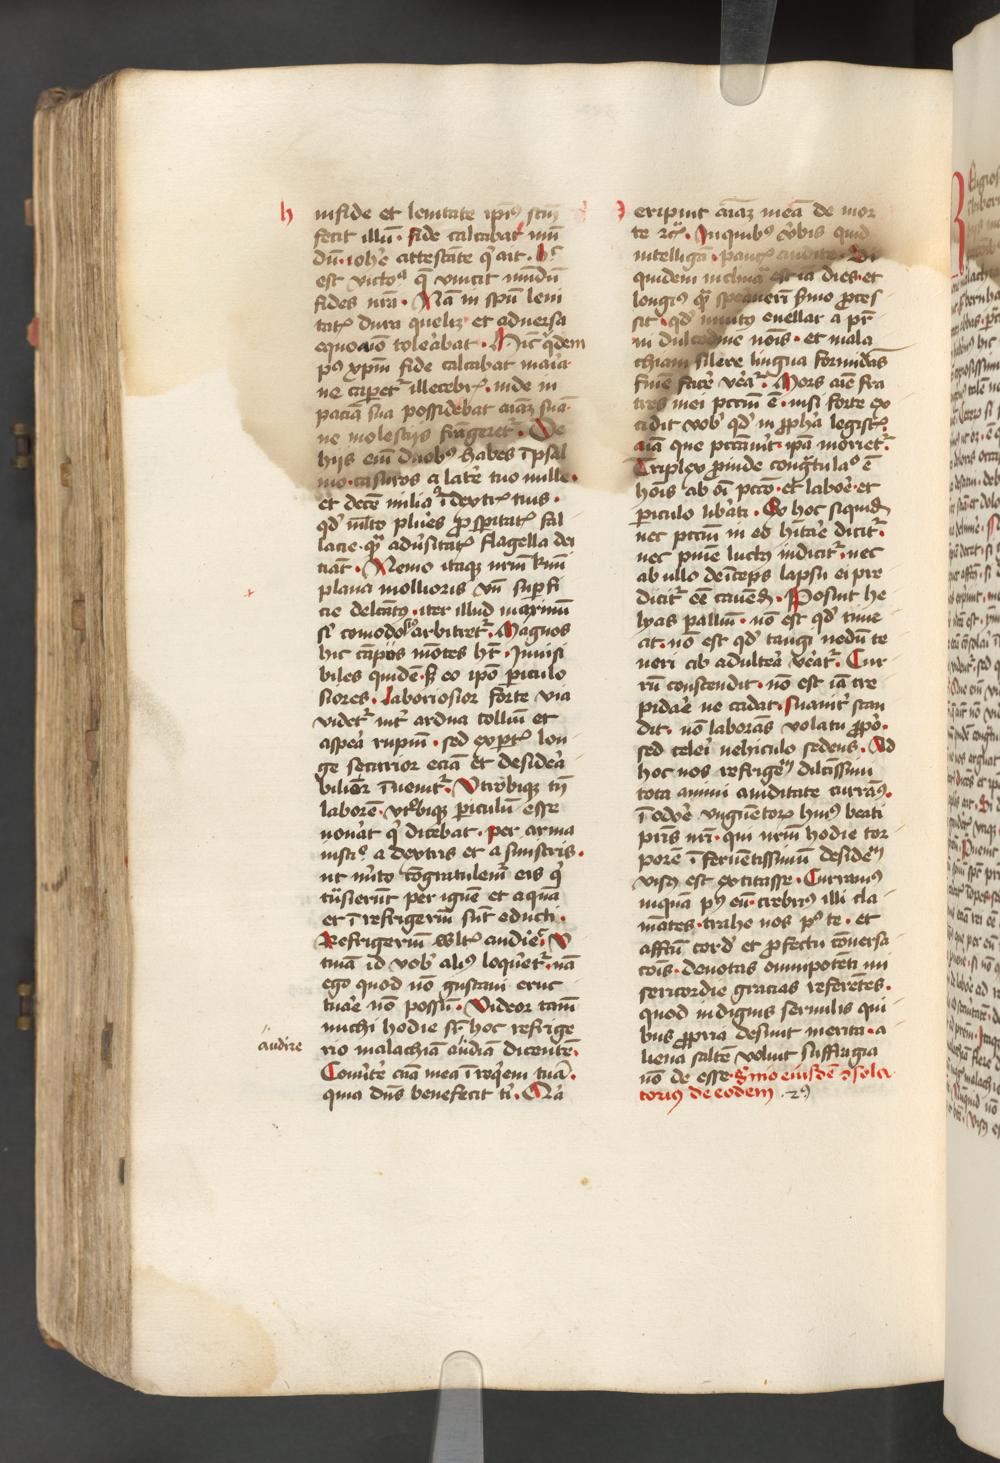 h
in fide et lenitate ipiꝰ scm̄
fecit illū · fide calcabat mū
dū · ioh̄e attestante q̇ ait · h̄
est victoᵃ q̄ vincit mūdū
fides nr̄a · Nā in spū leni
tatꝭ dura quelꝫ et adversa
equo aīo tolēabat · Hīc q̇dem
pꝰ xp̄m fide calcabat maīa
ne caperetᷣ illecebrꝭ · inde in
paciā sua possidebat aīaꝫ suā
ne molestijs frāgeretᷣ · De
hijs em̄ duobꝰ habes ī psal
mo · casuros a latē tuo mille ·
et decē milia ī dextrꝭ tuis ·
qd̄ m̄lto plures ꝓsperitatꝭ fal
lacie · q̄ adūsitatꝭ flagella dei
ciāt · Nemo itaqꝫ nrm̄ kmi
plana mollioris vn̄ supfi
cie delcatꝰ · iter illud maximū
sˡ comodoꝰ arbitretᷣ · Magnos
hic cāpos mōtes hꝫ · Inuisi
biles quidē · sꝫ eo ipō periculo
siores · Laboriosior forte via
videtᷣ int̄ ardua colliū et
aspēa rupiū · sed expertꝭ lon
ge securior eciā et desidēa
bilior īuenitᷣ · Utrobiqꝫ tn̄
laborē · vtrobiqꝫ periculū esse
nouāt q̇ dicebat · per arma
iusticꝭ a dextris et a sinistris ·
ut m̄ito cōgratulemᷣ eis q̇
tn̄sierunt per ignē et aquā
et ī refrigeriū sūt educti ·
Refrigeriū wltꝭ audiēˀ · V
tinā id vobˢ aliꝰ loqūetᷣ · nā
ego quod nō gustaui eruc
tuāe nō possū · Videor tamē
michi hodie sꝑ hoc refrige
rio malachiā audiā dicentē ·
Conūte aīa mea ī req̇em tuā ·
quia dn̄s benefecit t̄i · Qr̄a
audire
eripuit aīaꝫ meā de mor
te ⁊c̄ · In quibꝰ v̄bis quid
intelligā · paucꝭ audite · Di
quidem inclinaᵃ est ia dies · et
longiꝰ q̄ speraueri s̄mo ꝓces
sit · qd̄ inuitꝰ euellar a prīs
tā dulcedine nōis · et mala
chiam silere lingua formidās
finē facē veāᷣ · Mors aīe fra
tres mei pcc̄m ē · nisi forte ex
cidit vobˢ qd̄ in ꝓph̄a legistꝭ ·
aīa que pccāuit · ipā morietᷣ ·
Triplex ꝓinde congᵃtulaᵒ ē
hōis ab oī pcc̄o · et laboē · et
periculo libāti · Ex hoc siquidē
nec pcc̄m in eo h̄itāe dicitᷣ ·
nec pn̄ie luctꝰ indicitᷣ · nec
ab ullo deīceps lapsu ei pre
dicitᷣ eē cauend̄ · Posuit he
lyas palliū · nō est qd̄ time
at · nō est qd̄ tangi nedū te
neri ab adultēa veātᷣ · Cur
rū conscendit · nō est iā tre
pidāe ne cadat · suauit̄ scan
dit · nō laborās volatu ꝓpo ·
sed celeri uehiculo sedens · Ad
hoc nos refrigeⁿ dilc̄issimi
tota animi auiditate curraꝰ ·
ī odōe vnguentoꝝ huiꝰ beati
pr̄is nr̄i · qui nrm̄ hodie tor
porē ī feruentissimū desideⁿ
visꝰ est excitasse · Curramꝰ
inquā pꝰ eū · crebriꝰ illi cla
mātes · trahe nos pꝰ te · et
affcū cordˢ et ꝓfectu cōuersa
cōis · deuotas omnipotēti mi
sericordie gracias referētes ·
quod indignis seruulis qui
bus ꝓpria desunt merita · a
liena saltē voluit suffragia
nō de esse · S̄mo eiusdē ↄ̄sola
torius de eodem · ⁊ꝰ